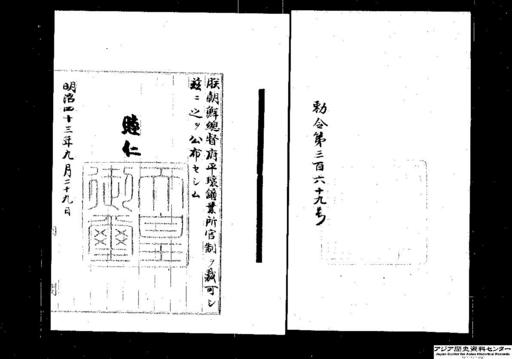 勅令第三百六十九号
朕朝鮮總督府平壌鑛業所官制ヲ裁可シ
茲ニ之ヲ公布セシム
睦仁
天皇
御璽
明治四十三年九月二十九日
アジア歴史資料センター
Japan Center for Asian Historical Records